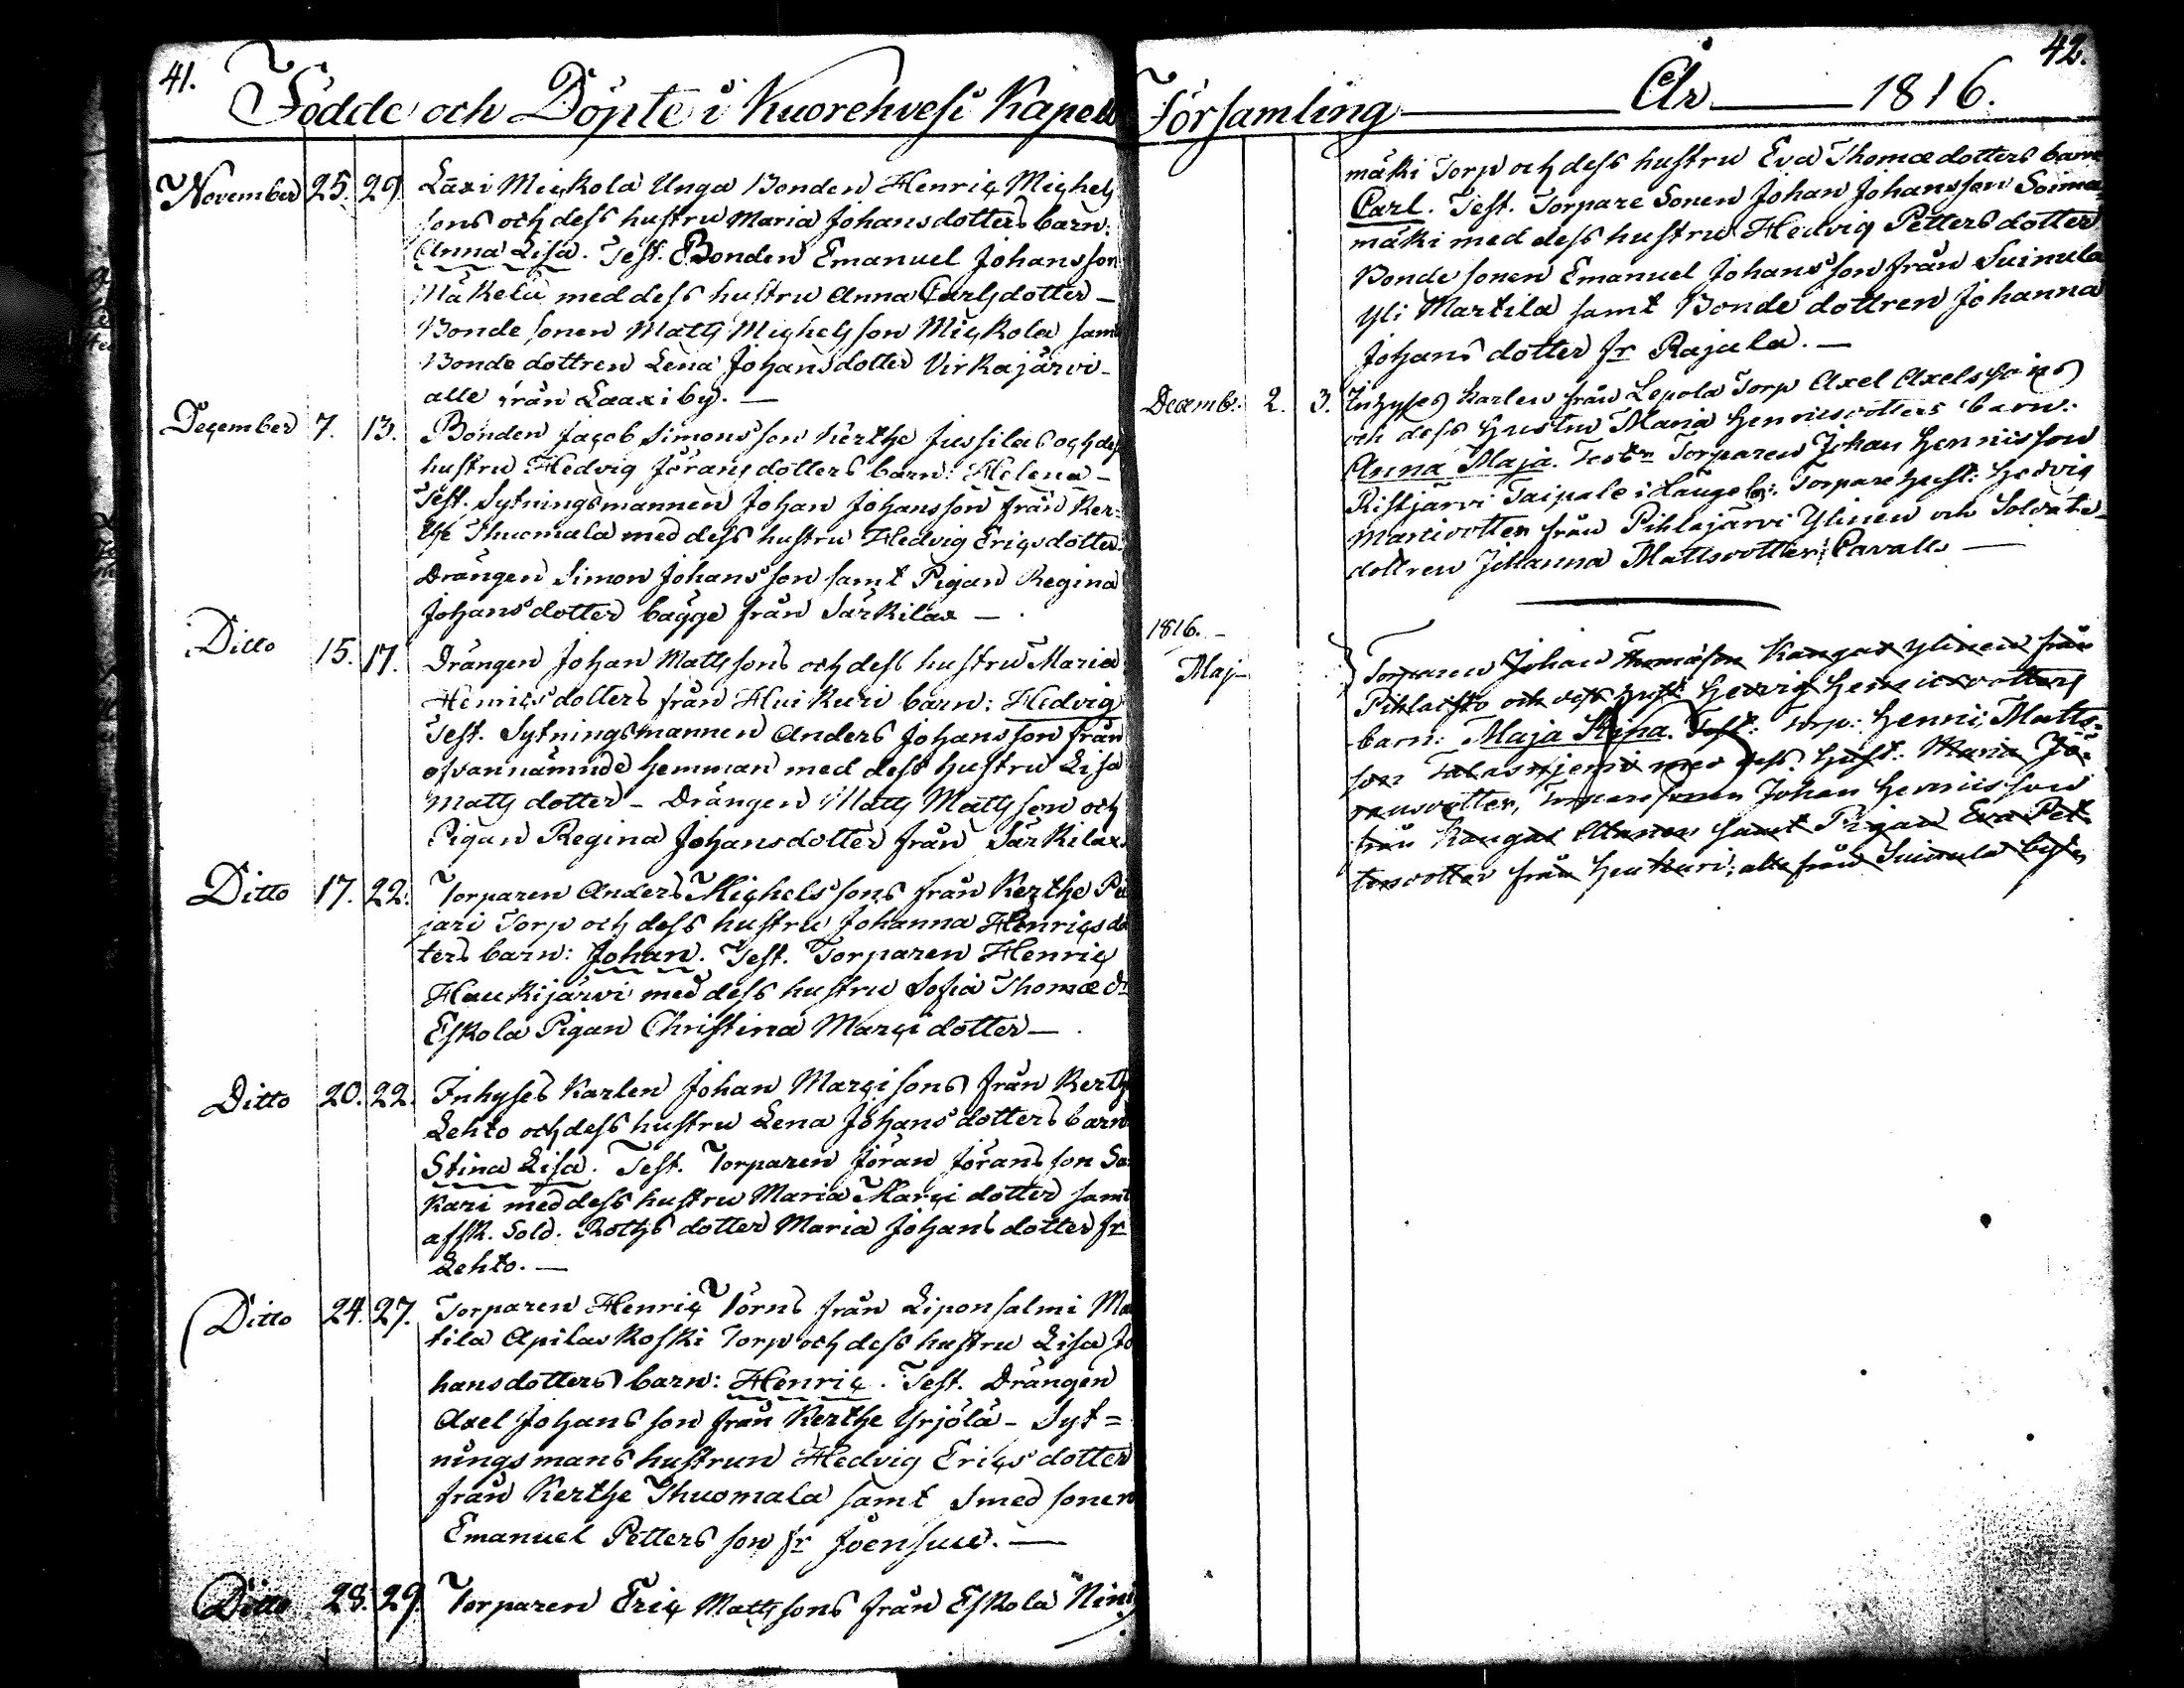 41.
Födde och Döpte i Kuorehvesi Kapell
November 25. 29. Läxi Mickola Unga Bonden Henric Michels
sons och dess hustru Maria Johansdotters barn:
Anna Lisa. Test. Bonden Emanuel Johansson
Mäkelä med dess hustru Anna Carlsdotter –
Bonde sonen Matts Michelsson Mickola samt
Bonde dottren Lena Johansdotter Virkajärvi –
alle från Laaxi by. —
December 7. 13. Bonden Jacob Simonsson Kerthe Jussilas och dess
hustru Hedvig Jöransdotters barn: Helena –
Test. Sytningsmannen Johan Johansson från Ker=
the Thuomala med dess hustru Hedvig Ericsdotter.
Drängen Simon Johansson samt Pigan Regina
Johansdotter bägge från Särkilax —
Ditto 15. 17. Drängen Johan Mattssons och dess hustru Maria
Henricsdotters från Huikuri barn: Hedvig
Test. Sytningsmannen Anders Johansson från
ofvannämnde hemman med dess hustru Lisa
Mattsdotter – Drängen Matts Mattsson och
Pigan Regina Johansdotter från Särkilax.
Ditto 17. 22. Torparen Anders Michelssons från Kerthe Pa
jari Torp och dess hustru Johanna Henricsdo
ters barn: Johan. Test. Torparen Henric
Haukijärvi med dess hustru Sofia Thomædr
Eskola Pigan Christina Marcidotter —
Ditto 20. 22. Inhyses Karlen Johan Marcisons från Kerthe
Lehto och dess hustru Lena Johansdotters barn
Stina Lisa. Test. Torparen Jöran Jöransson Sa
kari med dess hustru Maria Marcidotter samt
afsk. Sold. Roths dotter Maria Johansdotter fr
Lehto. —
Ditto 24. 27. Torparen Henric Törns från Liponsalmi Ma
tila Apilaskoski Torp och dess hustru Lisa Jo
hansdotters barn: Henric. Test. Drängen
Axel Johansson från Kerthe Yrjölä – Syt=
nings mans hustrun Hedvig Ericsdotter
från Kerthe Thuomala samt Smed sonen
Emanuel Pettersson fr Joensuu. —
Ditto 28. 29. Torparen Eric Mattssons från Eskola Nini
42.
Församling — År — 1816.
mäki Torp och dess hustru Eva Thomædotters barn
Carl. Test. Torpare Sonen Johan Johansson Soima
mäki med dess hustru Hedvig Pettersdotter
Bonde sonen Emanuel Johansson från Suinula
Yli Martila samt Bonde dottren Johanna
Johansdotter fr Rajala. —
Decemb: 2. 3. Inhyses Karlen från Lepola Torp Axel Axelssons
och dess Hustru Maria Henricsdotters barn:
Anna Maja. Testn Torparen Johan Henricsson
Ristjärvi Taipale i Länge by: Torpare hust: Hedvig
Marcidotter från Pihlajärvi Ylinen och Soldate
dottren Johanna Mattsdotter Cavall —
1816. –
Maj – Torparen Johan Thomasson Kangas Ylinen från
Pihlaisto och dess hust: Hedvig Henricsdotters
barn: Maja Stina. Test: Torp: Henric Matts=
son med dess Hust: Maria Jö=
ransdotter, Torparesonen Johan Henricsson
från Kangas samt Pigan Eva Pet
tersdotter från Huikuri; alla från Suinula by